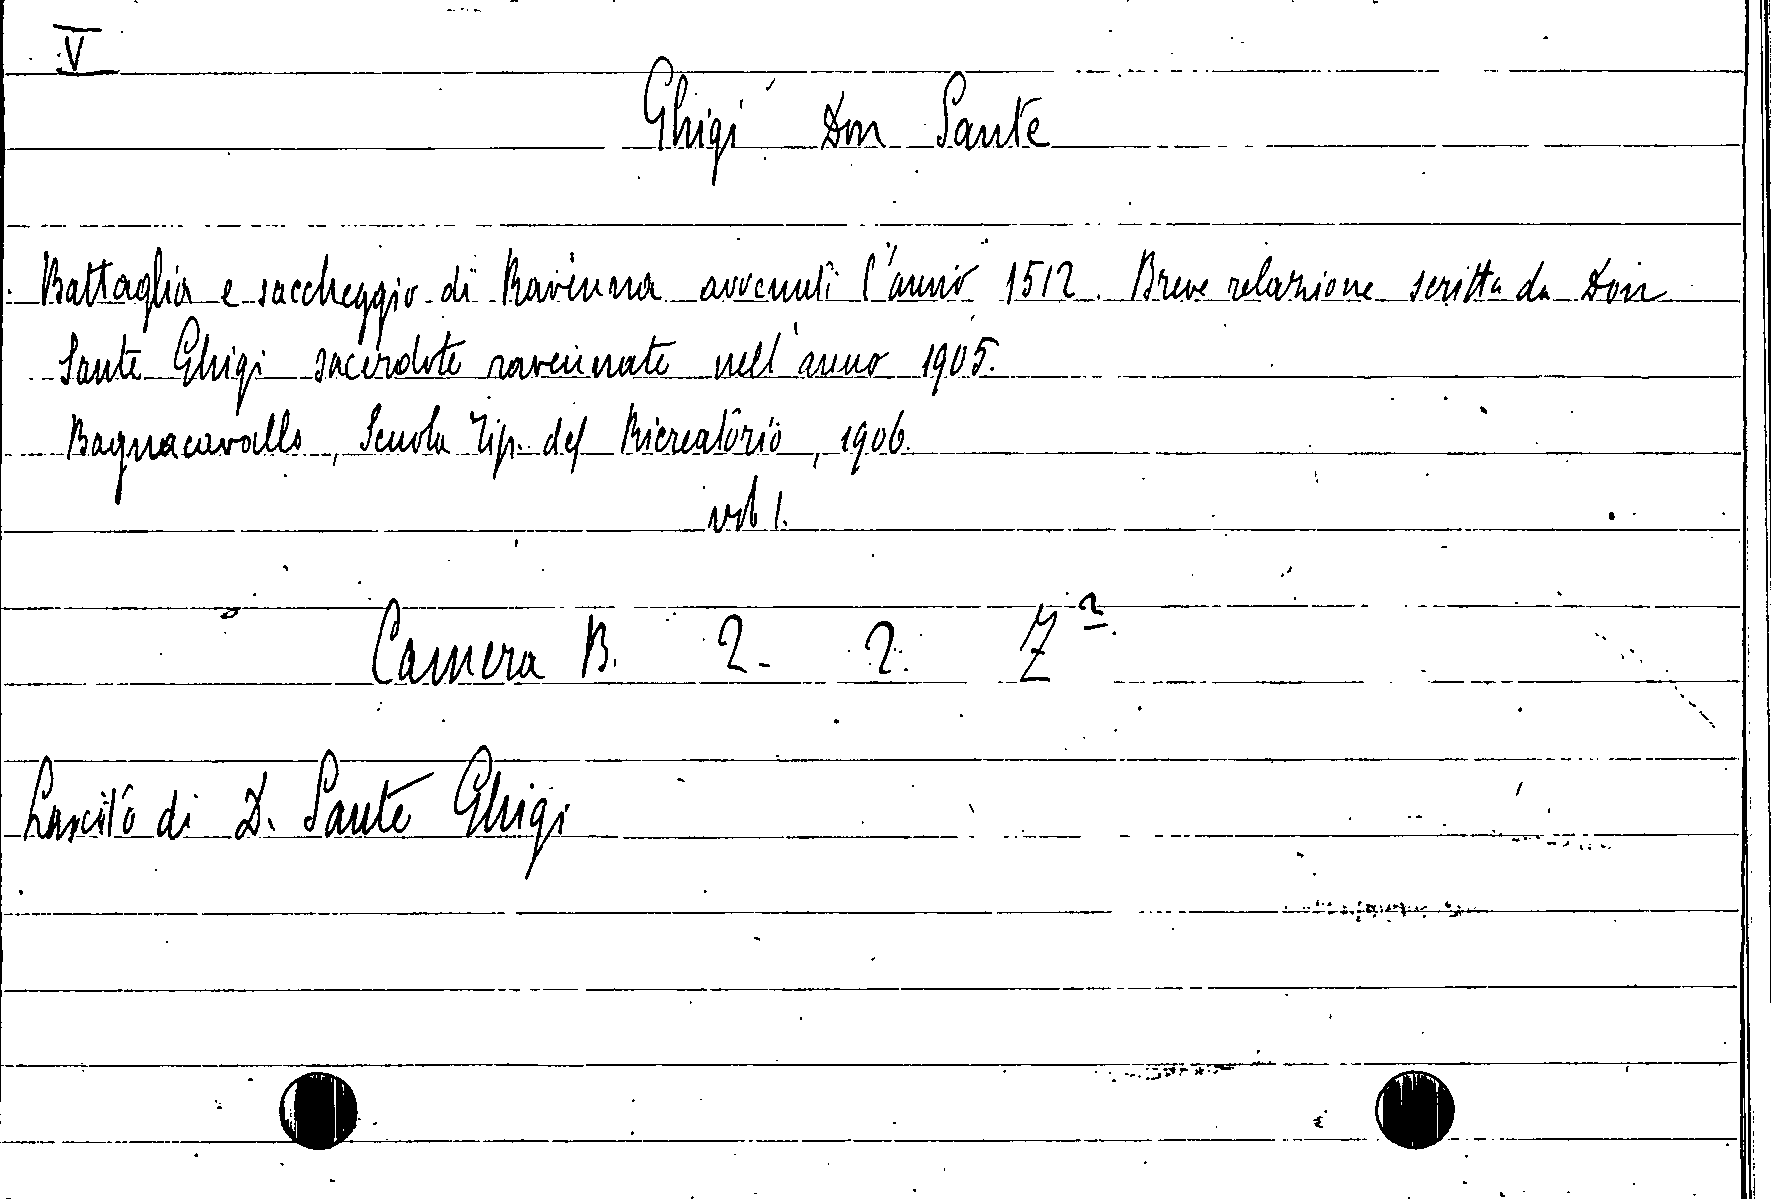 V
Ghigi Don Sante
Battaglia e saccheggio di Ravenna avvenuti l'anno 1512. Breve relazione scritta da Don
Sante Ghigi sacerdote ravennate nell'anno 1905.
Bagnacavallo, Scuola Tip. del Ricreatorio, 1906.
vol 1.
Camera B. 2. 2. Z²
Lascito di D. Sante Ghigi